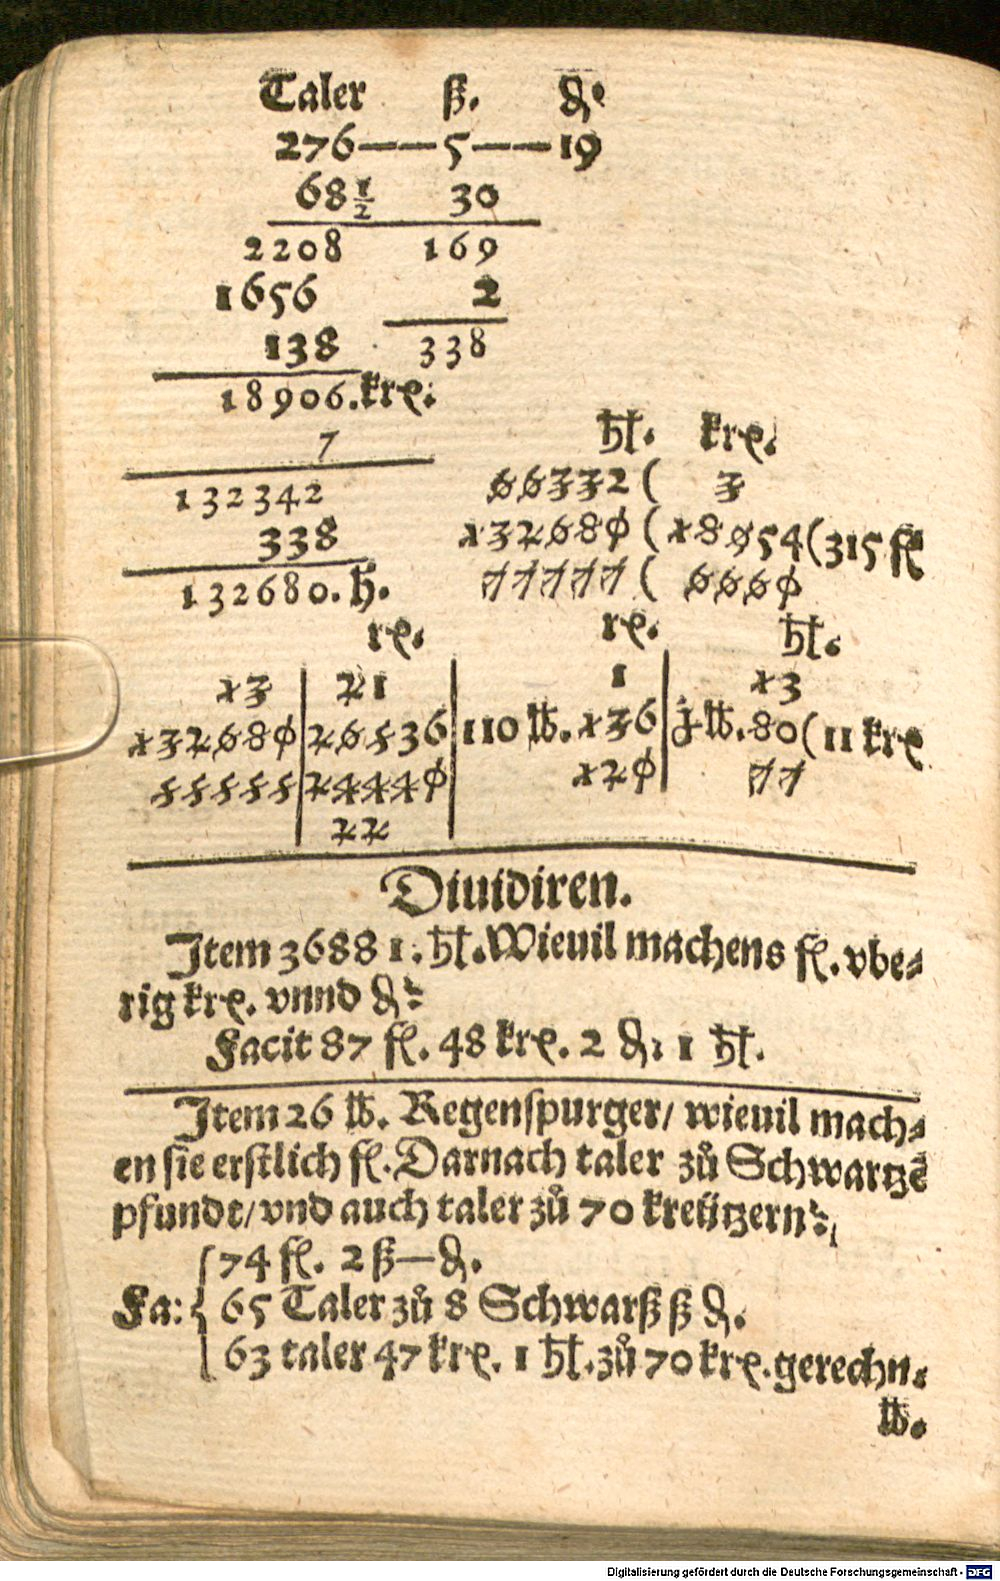 Taler ß. ₰
276——5——19
68½ 30
2208 169
1656 2
138 338
18906. krę:
7 hl. krę.
132342 66332( 3
338 132680( 18954(315 fl
132680. h. 77777( 6660
rę. rę. hl.
13 | 21 | 1 | 13
132680 | 26536 | 110 lb. 136 | j lb. 80(11 krę
55555 | 24440 | 120 | 77
22
Diuidiren.
Item 36881. hl. Wieuil machens fl. vbe-
rig krę. vnnd ₰:
Facit 87 fl. 48 krę. 2 ₰: 1 hl.
Item 26 lb. Regenspurger/ wieuil mach-
en sie erstlich fl. Darnach taler zů Schwartzē
pfundt/ vnd auch taler zů 70 kreützern:
74 fl. 2 ß—₰.
Fa: { 65 Taler zů 8 Schwarß ß ₰.
63 taler 47 krę. 1 hl. zů 70 krę. gerechn.
lb.
Digitalisierung gefördert durch die Deutsche Forschungsgemeinschaft - DFG